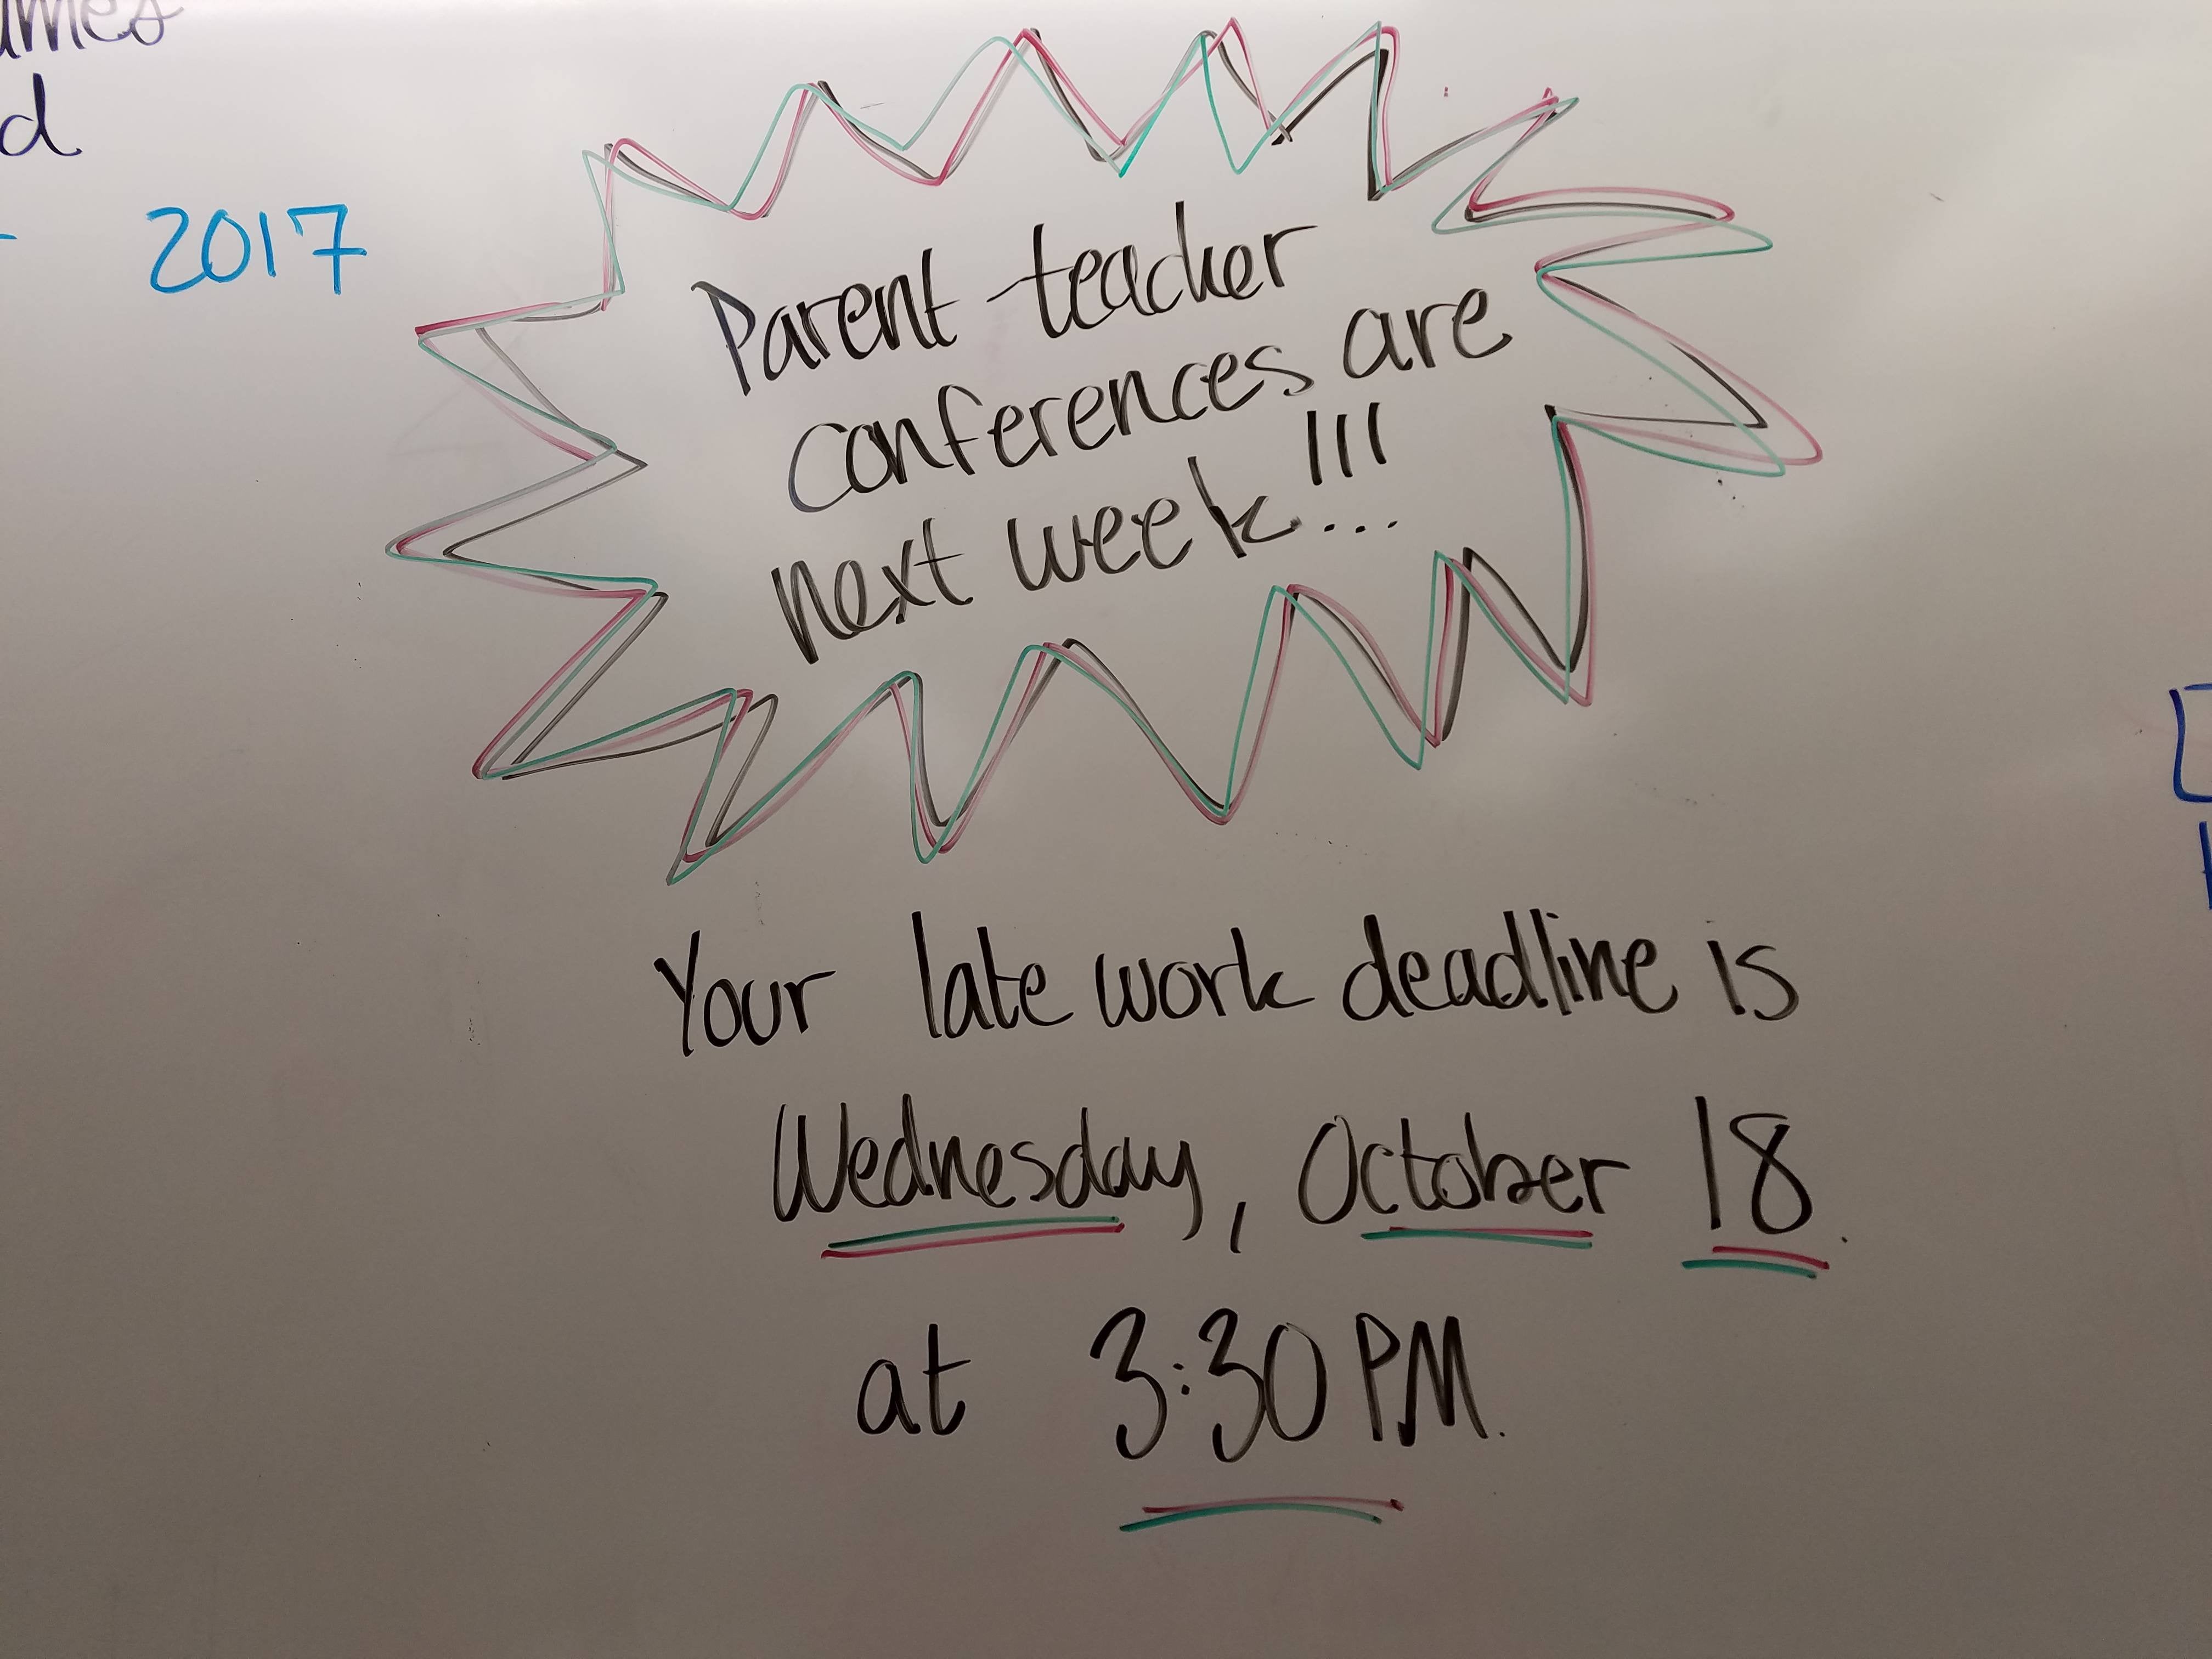 d
2017
Parent-teacher
conferences are
next week!!!
Your late work deadline is
Wednesday, October 18.
at 3:30 PM.